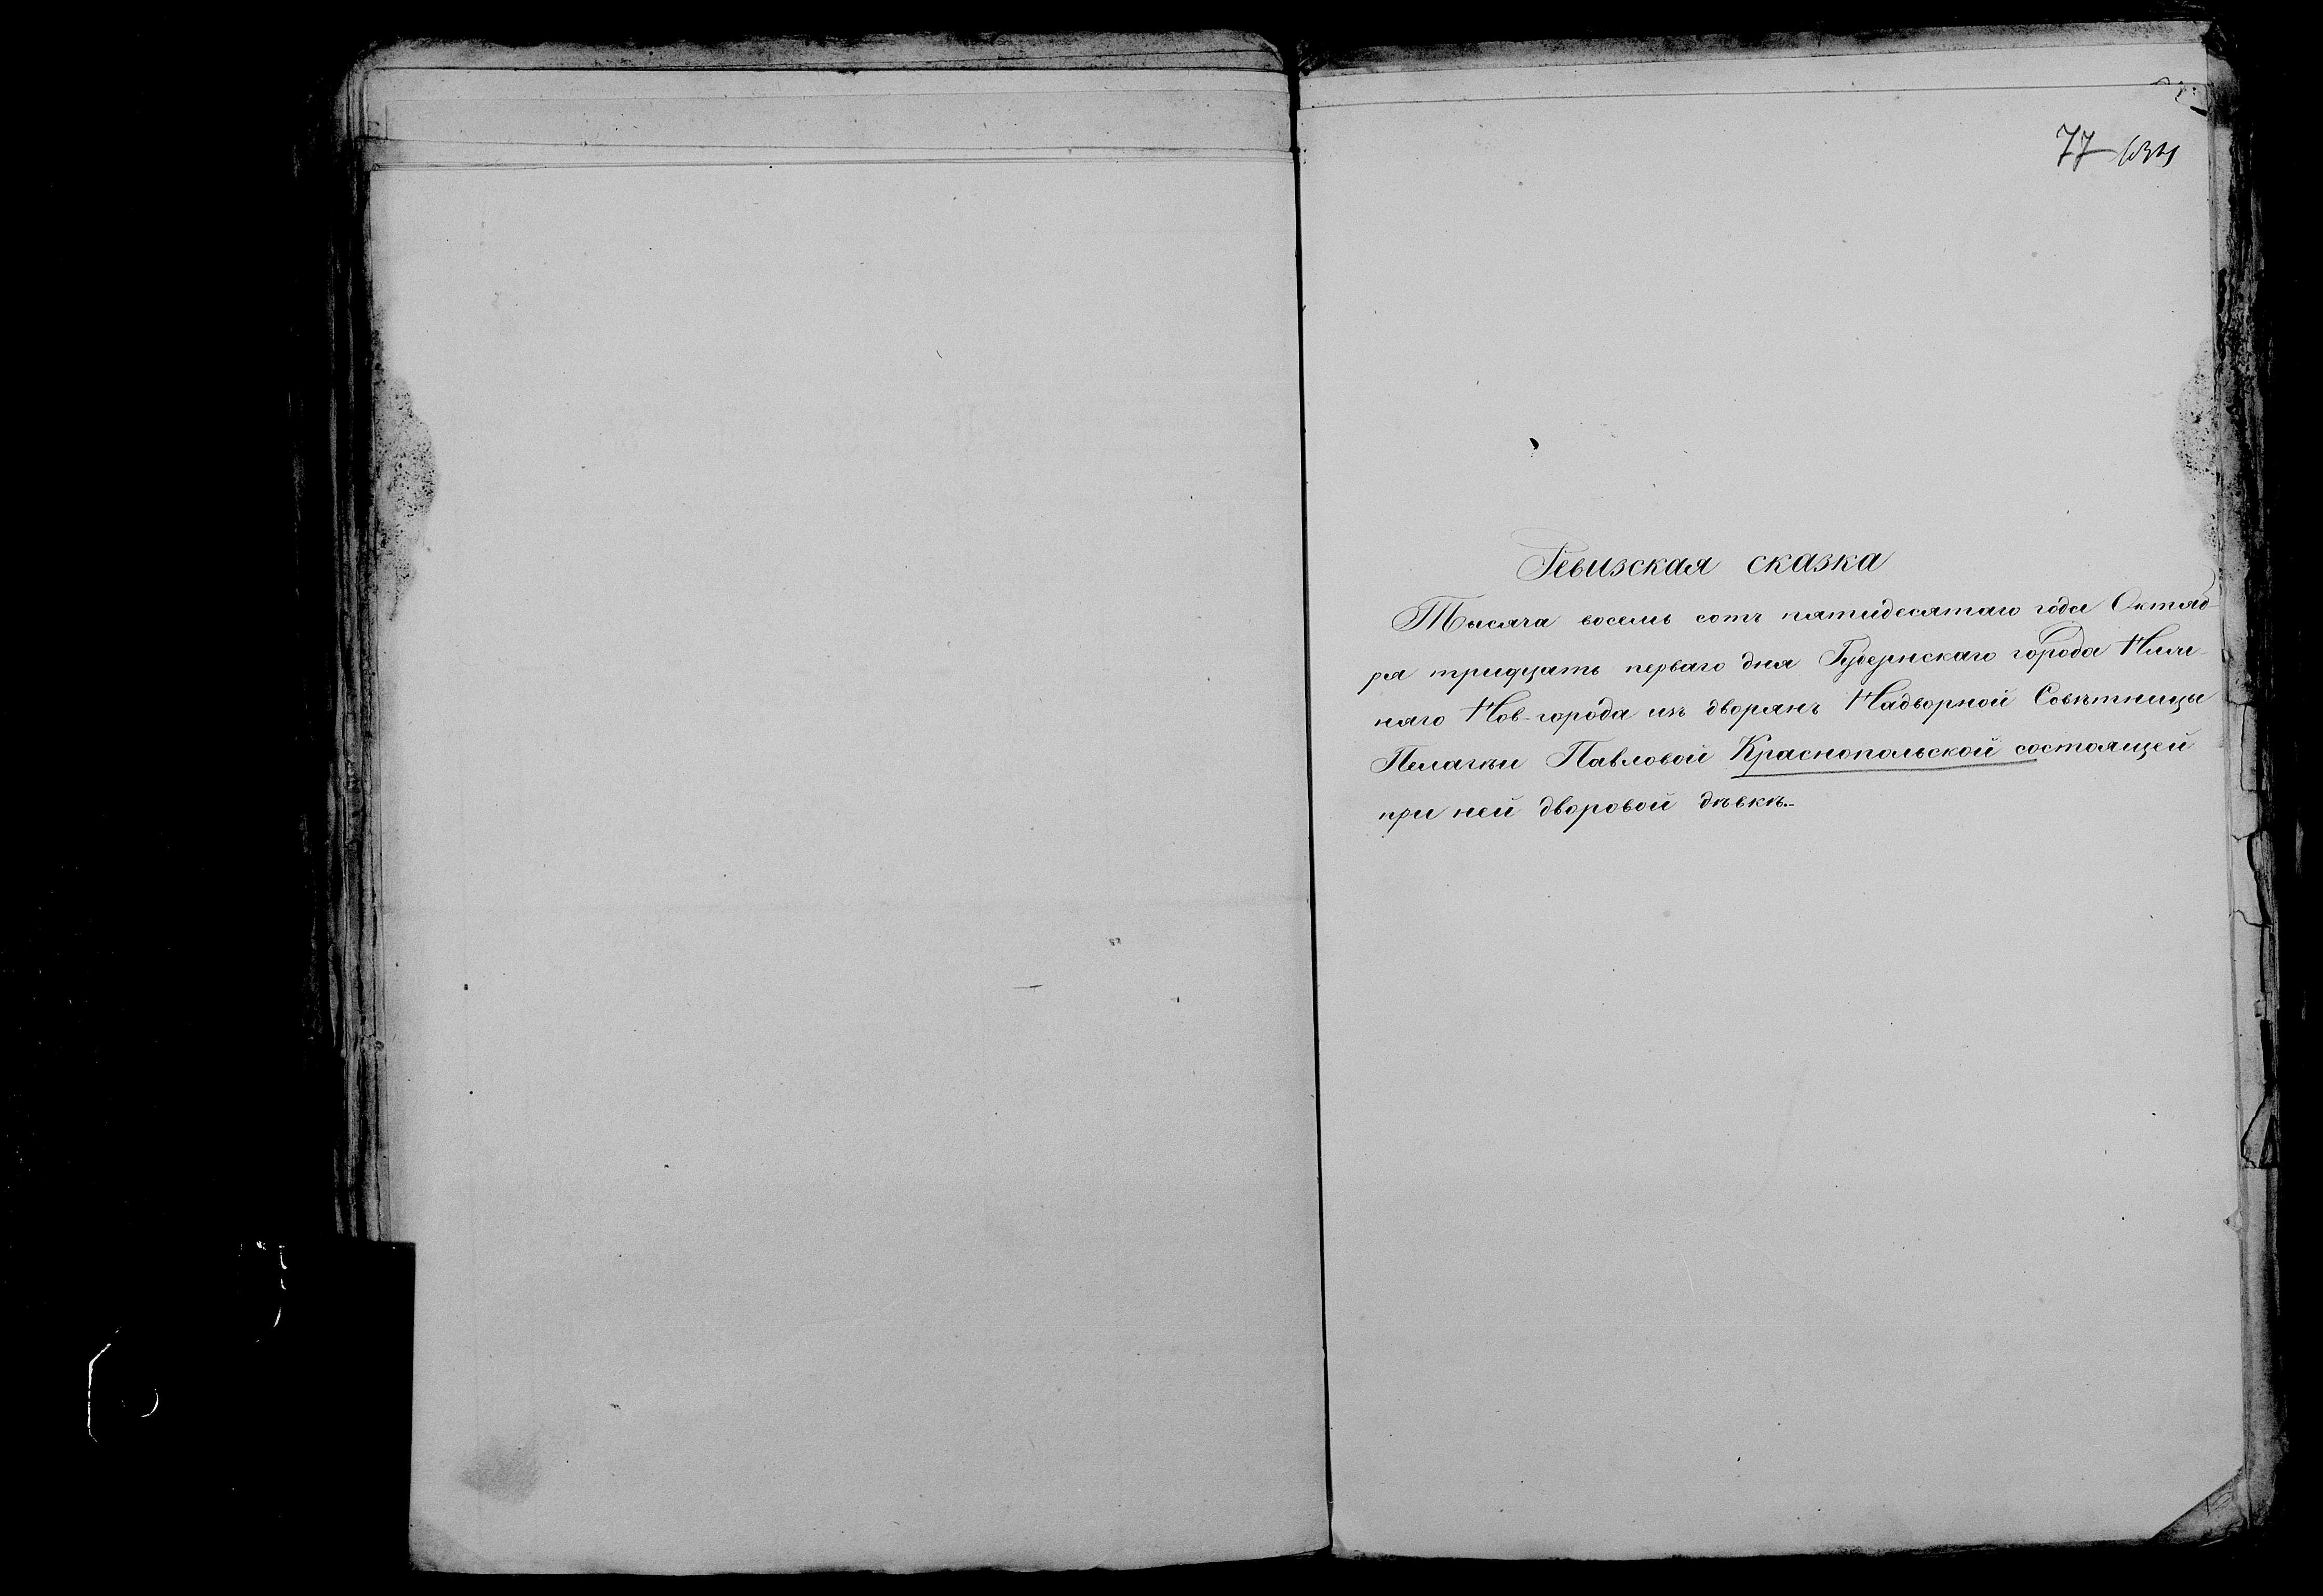 77
Ревизская сказка
Тысяча восемь сотъ пятидесятаго года Октяб-
ря тридцать перваго дня Губернскаго города Ниж-
няго Нов-города изъ дворянъ Надворной Совѣтницы
Пелагѣи Павловой Краснопольской состоящей
при ней дворовой дѣвкѣ.